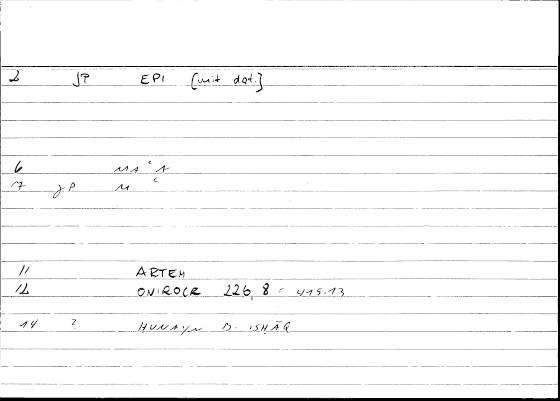 2 JP EPI [mit dat.]
6 MA ʿ A
7 JP M ʿ
11 ARTEM
12 ONIROCR 226, 8 = 415.13
14 ? HUNAYN B. ISHĀQ